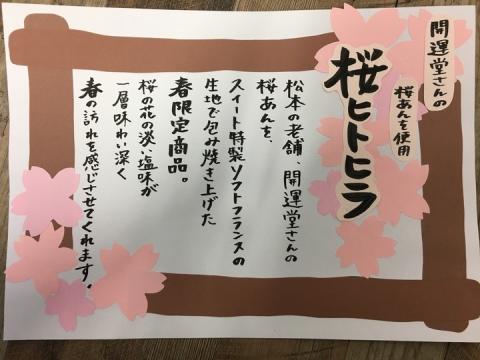 開運堂さんの
桜あんを使用
桜ヒトヒラ
松本の老舗、開運堂さんの
桜あんを、
スイート特製ソフトフランスの
生地で包み焼き上げた
春限定商品。
桜の花の淡い塩味が
一層味わい深く
春の訪れを感じさせてくれます。